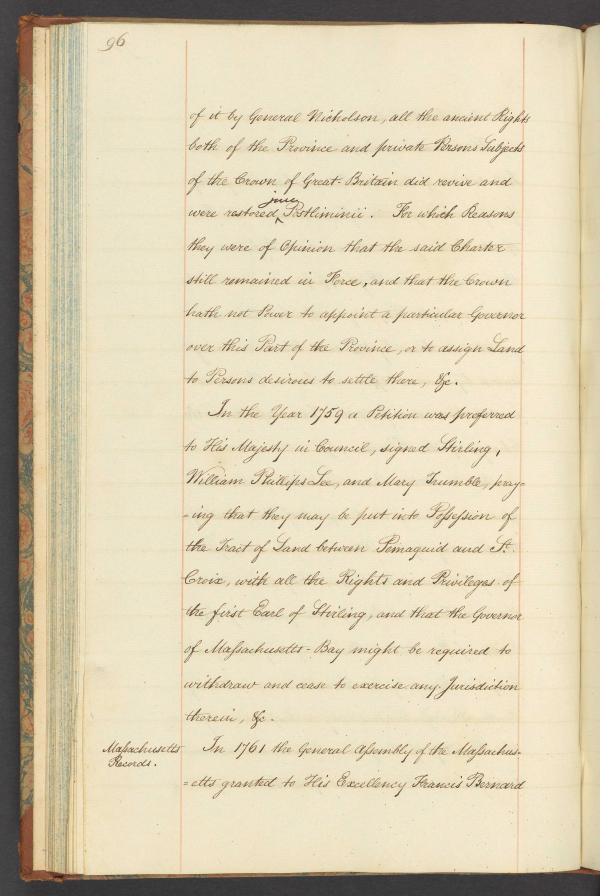 96
of it by General Nicholson, all the ancient Rights
both of the Province and private Persons Subjects
of the Crown of Great-Britain did revive and
jure
were restored ‸ Postliminii. For which Reasons
they were of Opinion that the said Charter
still remained in Force, and that the Crown
hath not Power to appoint a particular Governor
over this Part of the Province, or to assign Land
to Persons desirous to settle there, &c.
In the Year 1759 a Petition was preferred
to His Majesty in Council, signed Stirling,
William Phillips Lee, and Mary Trumble, pray=
=ing that they may be put into Possession of
the Tract of Land between Pemaquid and St.
Croix, with all the Rights and Privileges of
the first Earl of Stirling, and that the Governor
of Massachusetts-Bay might be required to
withdraw and cease to exercise any Jurisdiction
therein, &c.
Massachusetts
Records.
In 1761 the General Assembly of the Massachus=
=etts granted to His Excellency Francis Bernard